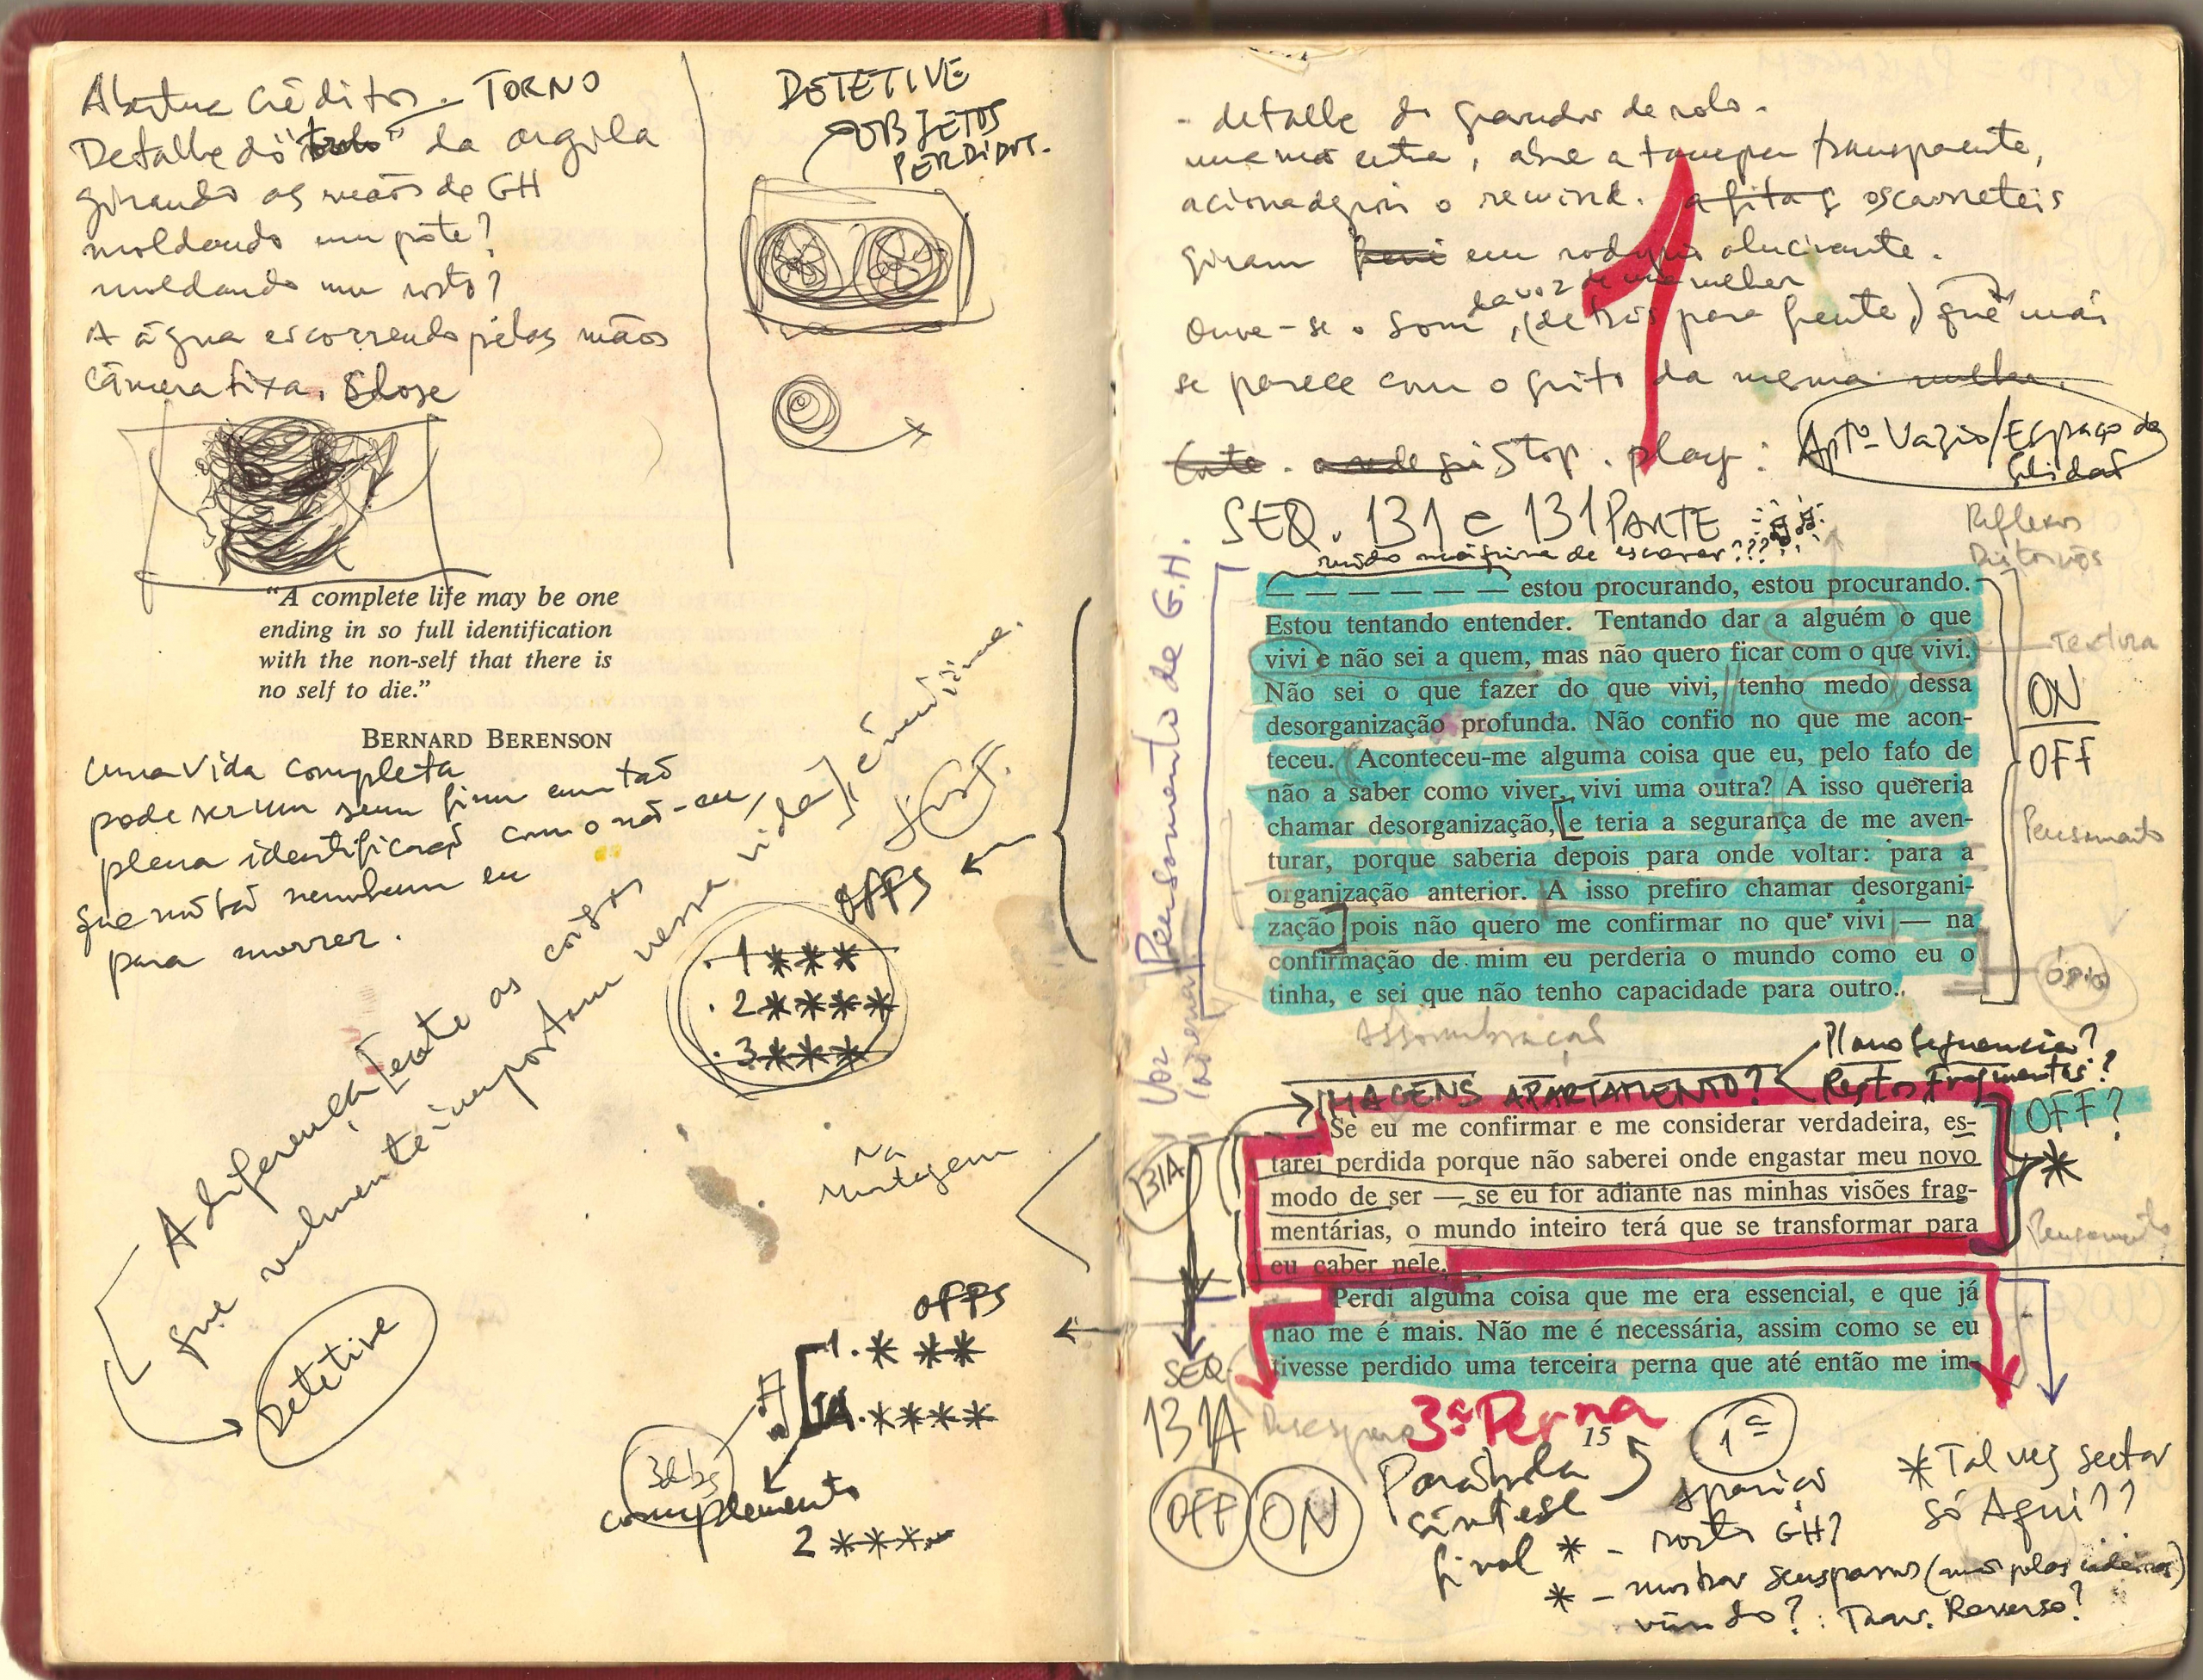 Abertura Créditos - TORNO
Detalhe do "bolo" da argila
girando as mãos de GH
moldando um pote?
moldando um rosto?
A água escorrendo pelas mãos
câmera fixa. Close
DETETIVE
OBJETOS
PERDIDOS.
"A complete life may be one
ending in so full identification
with the non-self that there is
no self to die."
BERNARD BERENSON
uma vida completa
pode ser um sem fim em tão
plena identificação com o não-eu,
que não há nenhum eu
para morrer.
A diferença entre as coisas
que realmente importam nessa vida
é
Detetive
OFFS
. 1 ***
. 2 ****
. 3 ***
Na
Montagem
OFFS
1. * **
1A. ****
complemento
2 ***
- detalhe do gravador de rolo -
uma mão entra, abre a tampa transparente,
aciona depois o rewind. a fita os carretéis
giram em rodopio alucinante.
da voz de uma mulher
Ouve-se o som, (de trás para frente) que mais
se parece com o grito da mesma mulher.
Corte. Stop. play:
Aptº Vazio/Espaço da
SEQ. 131 e 131 PARTE
ruído máquina de escrever???
Reflexos
Voz Pensamento de G.H.
— — — — — — estou procurando, estou procurando.
Estou tentando entender. Tentando dar a alguém o que
vivi e não sei a quem, mas não quero ficar com o que vivi.
Não sei o que fazer do que vivi, tenho medo dessa
desorganização profunda. Não confio no que me acon-
teceu. Aconteceu-me alguma coisa que eu, pelo fato de
não a saber como viver, vivi uma outra? A isso quereria
chamar desorganização, e teria a segurança de me aven-
turar, porque saberia depois para onde voltar: para a
organização anterior. A isso prefiro chamar desorgani-
zação pois não quero me confirmar no que vivi — na
confirmação de mim eu perderia o mundo como eu o
tinha, e sei que não tenho capacidade para outro.
Textura
ON
OFF
Pensamento
ópio
Assombração
IMAGENS APARTAMENTO?
Plano Sequencia?
Restos Fragmentos?
OFF?
*
131A
Se eu me confirmar e me considerar verdadeira, es-
tarei perdida porque não saberei onde engastar meu novo
modo de ser — se eu for adiante nas minhas visões frag-
mentárias, o mundo inteiro terá que se transformar para
eu caber nele.
Pensamento
Perdi alguma coisa que me era essencial, e que já
não me é mais. Não me é necessária, assim como se eu
tivesse perdido uma terceira perna que até então me im-
SEQ
131A
Desespero
3ª Perna
15
OFF
ON
Parábola
síntese
final
1ª
aparição
* - rosto GH?
* - mostrar seus passos (mas pelas
vindo? : Trav. Reverso?
* Talvez
só Aqui??